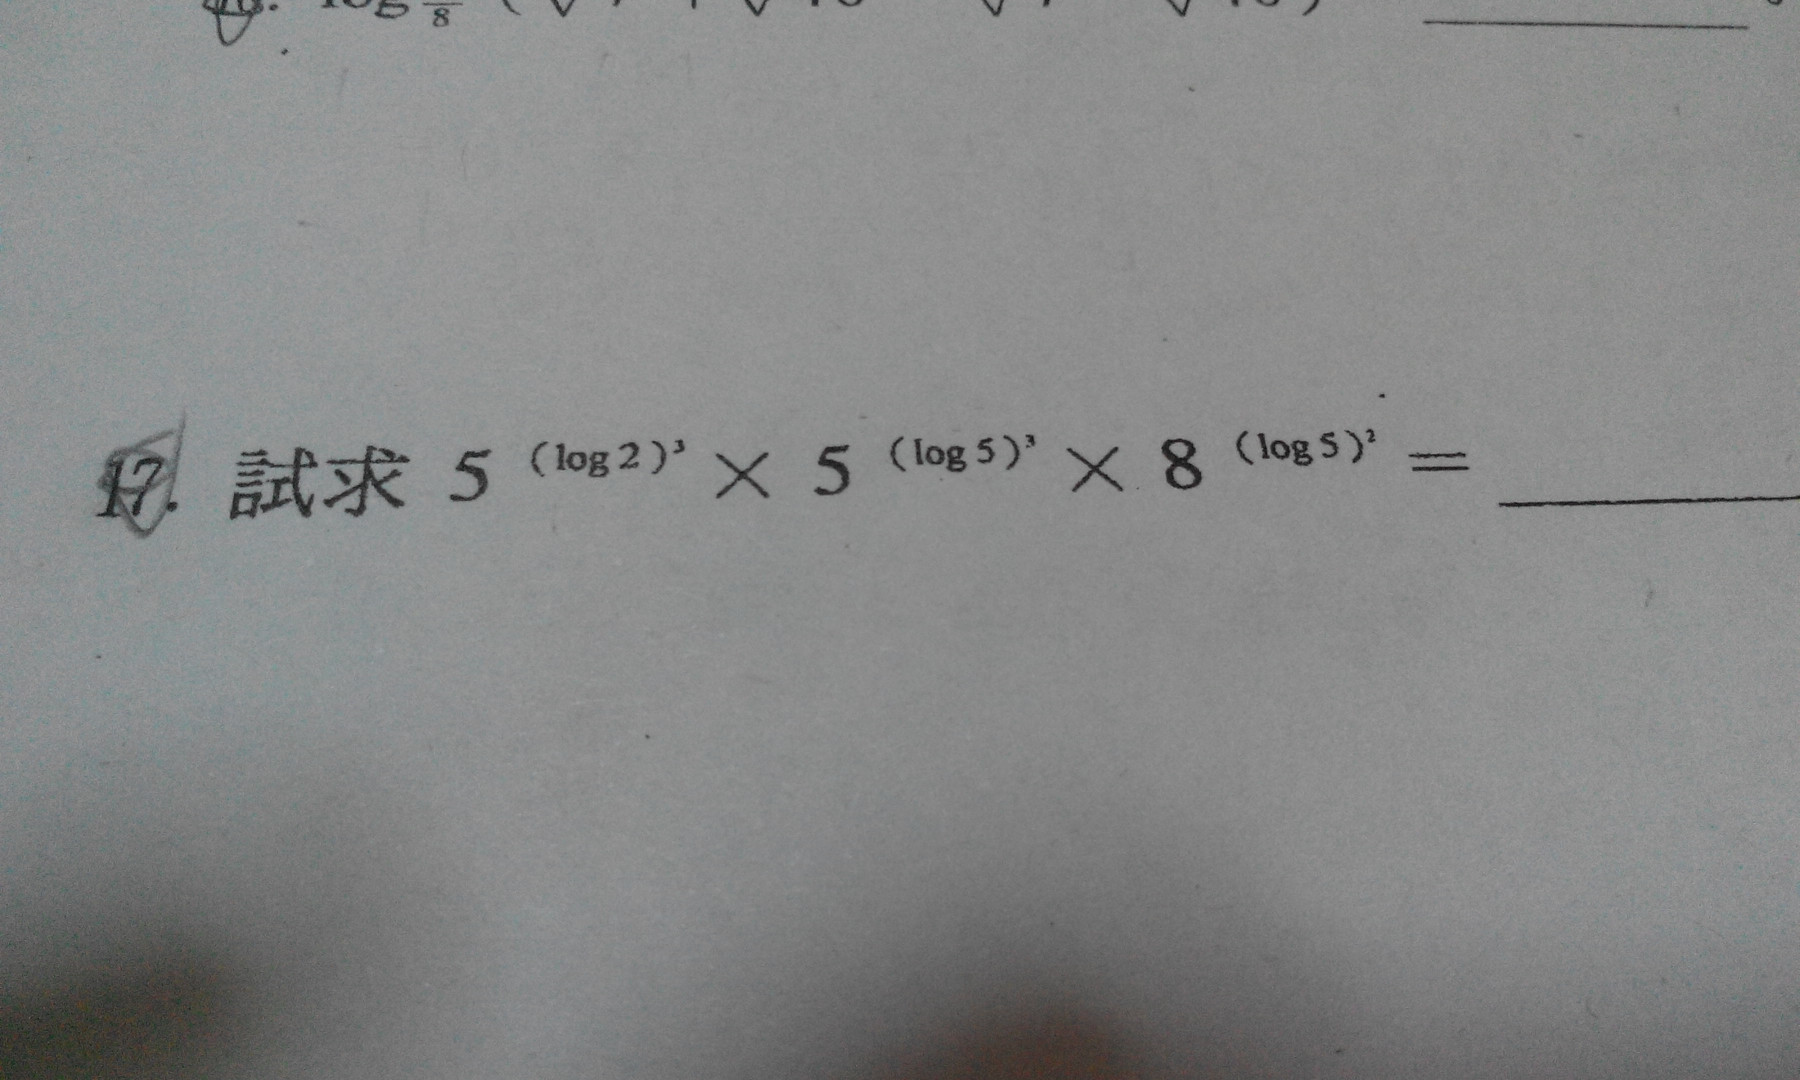 log 8 (
17. 試求 5 ^(log 2)³ × 5 ^(log 5)³ × 8 ^(log 5)² = ______